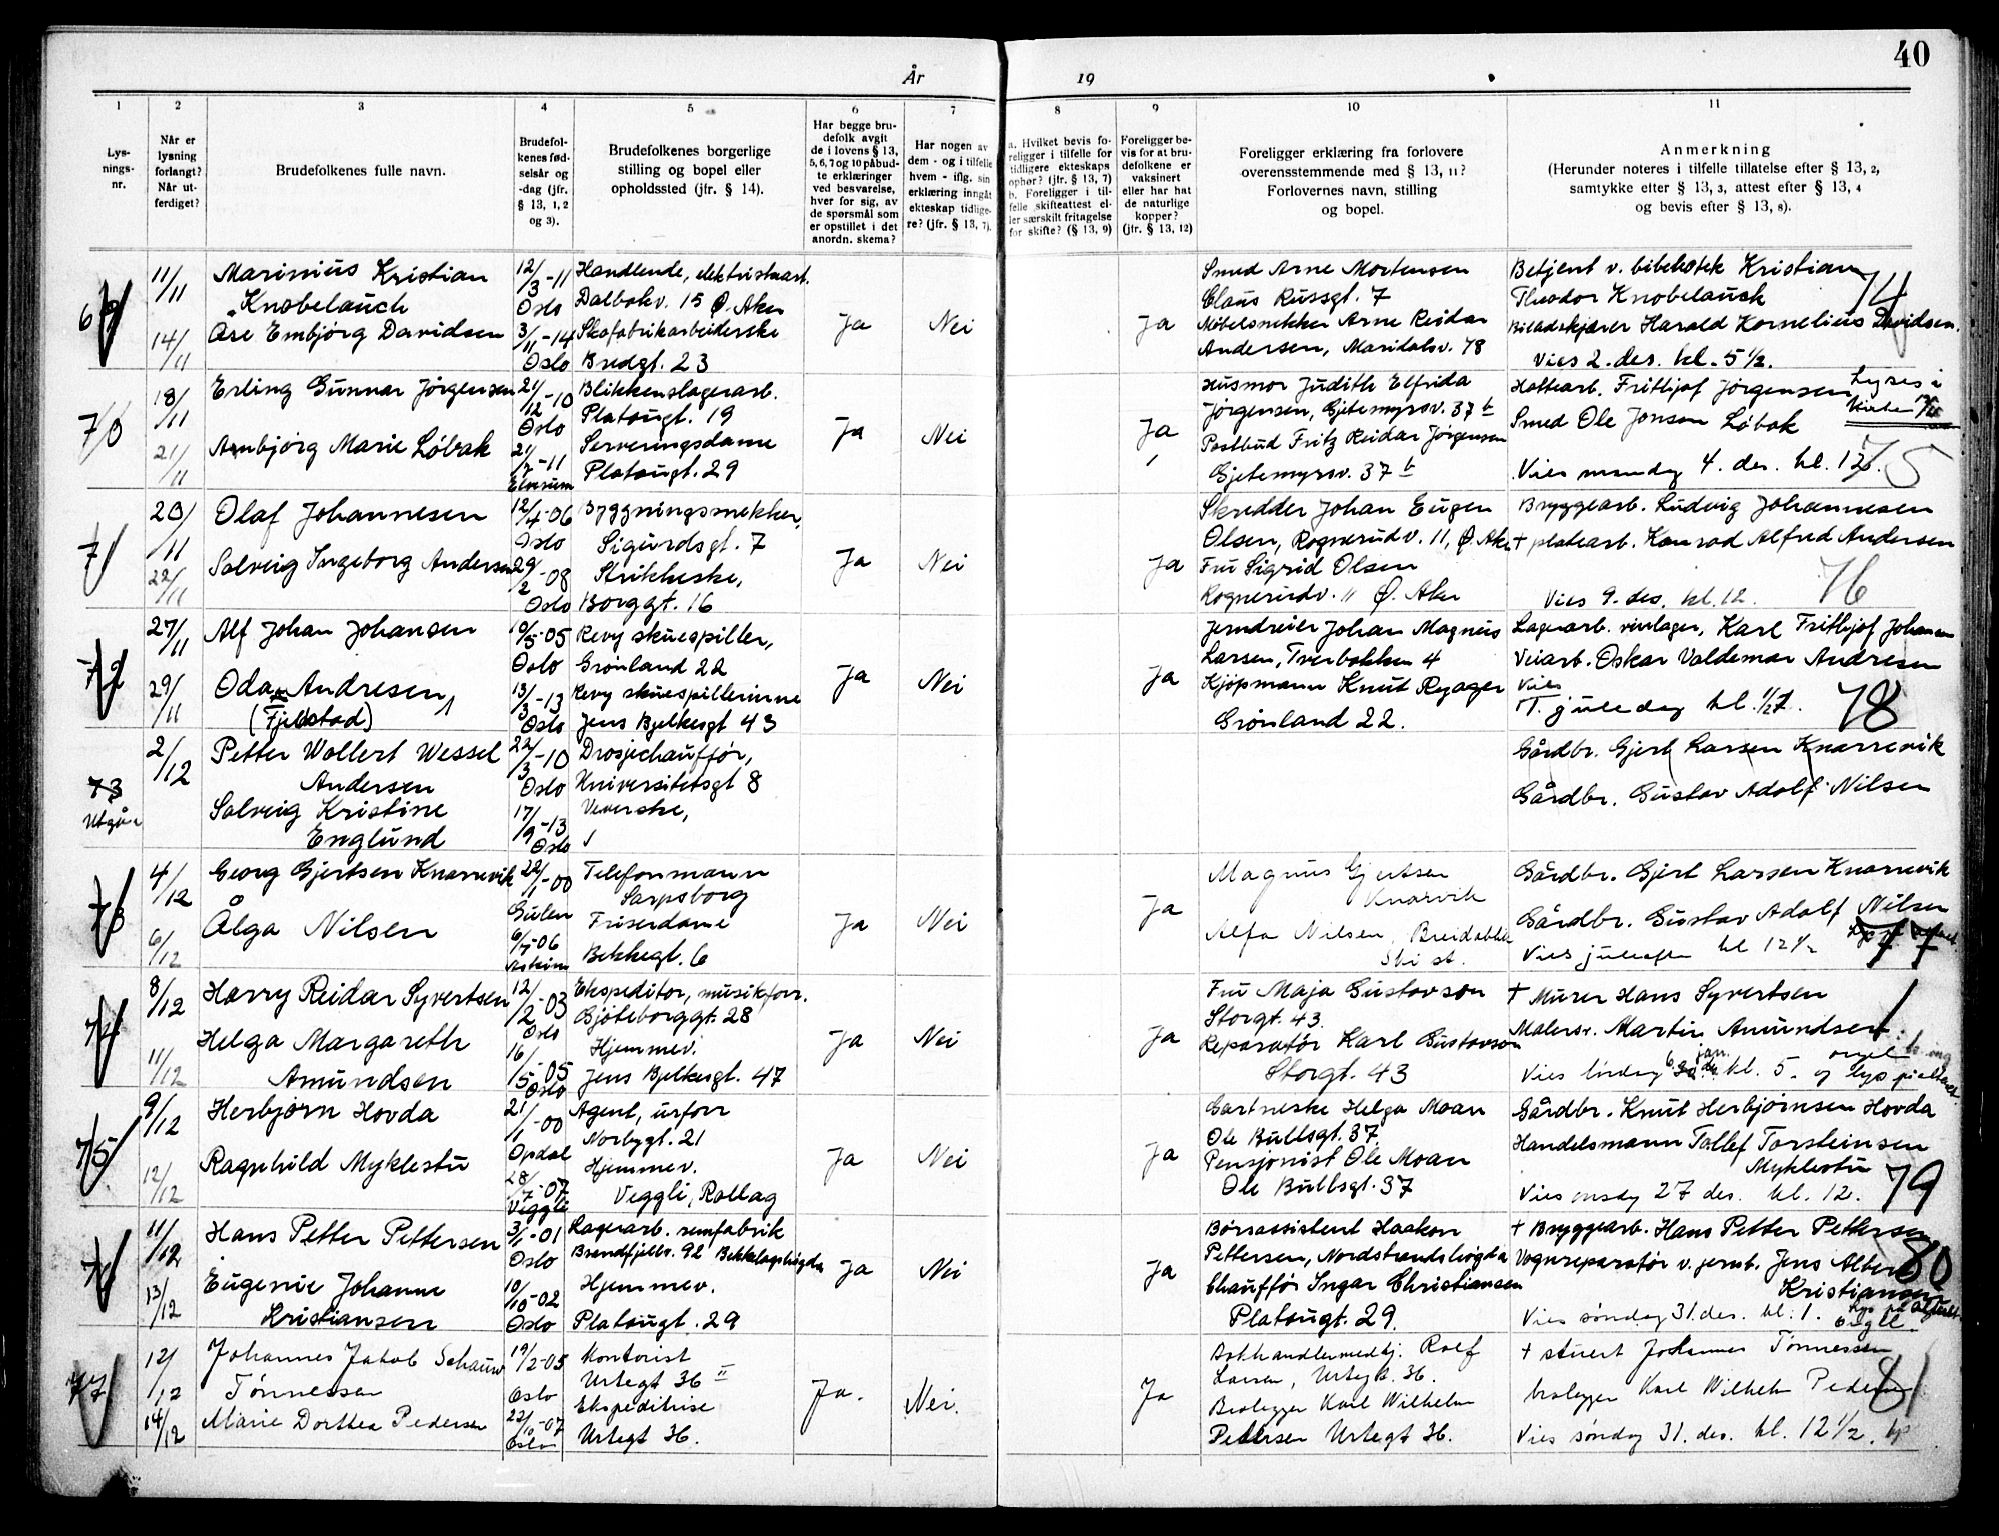 40
År 19
1 2 3 4 5 6 7 8 9 10 11
Lys-
nings-
nr.
Når er
lysning
forlangt?
Når ut-
ferdiget?
Brudefolkenes fulle navn.
Brudefol-
kenes fød-
selsår og
-dag (jfr.
§ 13, 1, 2
og 3).
Brudefolkenes borgerlige
stilling og bopel eller
opholdssted (jfr. § 14).
Har begge bru-
defolk avgit
de i lovens § 13,
5, 6, 7 og 10 påbud-
te erklæringer
ved besvarelse,
hver for sig, av
de spørsmål som
er opstillet i det
anordn. skema?
Har nogen av
dem - og i tilfelle
hvem - iflg. sin
erklæring inngåt
ekteskap tidlige-
re? (jfr. § 13, 7).
a. Hvilket bevis fo-
religger i tilfelle for
tidligere ekteskaps
ophør? (jfr. § 13, 7)
b. Foreligger i til-
felle skifteattest el-
ler særskilt fritagelse
for skifte? (§ 13, 9)
Foreligger be-
vis for at bru-
defolkene er
vaksinert
eller har hat
de naturlige
kopper?
(jfr. § 13, 12)
Foreligger erklæring fra forlovere
overensstemmende med § 13, 11?
Forlovernes navn, stilling
og bopel.
Anmerkning
(Herunder noteres i tilfelle tillatelse efter § 13, 2,
samtykke efter § 13, 3, attest efter § 13, 4
og bevis efter § 13, 8).
69
11/11
14/11
Marinius Kristian
Knobelauch
Åse Embjørg Davidsen
12/3-11
Oslo
3/11-14
Oslo
Handlende, elektriskart.
Dalbakv. 15 Ø. Aker
Skofabrikarbeiderske
Bredgt. 23
Ja
Nei
Ja
Smed Arne Mortensen
Claus Russgt. 7
Møbelsnekker Arne Reidar
Andersen, Maridalsv. 78
Betjent v. bibliotek Kristian
Theodor Knobelauch
Harald Kornelius Davidsen.
Vies 2. des. kl. 5 1/2.
74
70
18/11
21/11
Erling Gunnar Jørgensen
Arnbjørg Marie Løbak
21/12-10
Oslo
21/7-11
Elverum
Blikkenslagerarb.
Platougt. 19
Serveringsdame
Platougt. 29
Ja
Nei
Ja
Husmor Judith Elfrida
Jørgensen, Gjetemyrsv. 37 b
Postbud Fritz Reidar Jørgensen
Gjetemyrsv. 37 b
Hattearb. Frithjof Jørgensen
Lyses i
Smed Ole Jonson Løbak
Vies mandag 4. des. kl. 12.
75
71
20/11
22/11
Olaf Johannesen
Solveig Ingeborg Andersen
12/4-06
Oslo
29/2-08
Oslo
Bygningsnekker,
Sigurdsgt. 7
Strikkeske,
Borggt. 16
Ja
Nei
Ja
Skredder Johan Eugen
Olsen, Rognerudv. 11, Ø. Aker
Fru Sigrid Olsen
Rognerudv. " Ø. Aker
Bryggearb. Ludvig Johannesen
+ platearb. Konrad Alfred Andersen
Vies 9. des. kl. 12.
76
72
27/11
29/11
Alf Johan Johansen
Oda Andresen
(Fjeldstad)
10/5-05
Oslo
13/3-13
Oslo
Revy skuespiller,
Grønland 22
Revy skuespillerinne
Jens Bjelkesgt 43
Ja
Nei
Ja
Jerndreier Johan Magnus
Larsen, Tverbakken 4
Kjøpmann Knut Ryager
Grønland 22.
Lagerarb. vinlager, Karl Frithjof Johansen
Veiarb. Oskar Valdemar Andresen
Vies
1. juledag kl. 1/2 7.
78
73
Utgår
2/12
Petter Wollert Wessel
Andersen
Solveig Kristine
Englund
22/3-10
Oslo
17/9-13
Oslo
Drosjechauffør,
Universitetsgt 8
Veverske,
Gårdbr. Gjert Larsen Knarrevik
Gårdbr. Gustav Adolf Nilsen
73
4/12
6/12
Georg Gjertsen Knarrevik
Ålga Nilsen
22/1-00
Gulen
6/7-06
Askim
Telefonmann
Sarpsborg
Friserdame
Bekkegt. 6
Ja
Nei
Ja
Magnus Gjertsen
Knarvik
Alfa Nilsen, Breidablikk
Ski st.
Gårdbr. Gjert Larsen Knarrevik
Gårdbr. Gustav Adolf Nilsen
Vies juleaften kl 12 1/2
77
74
8/12
11/12
Harry Reidar Syvertsen
Helga Margareth
Amundsen
12/2-03
Oslo
16/5-05
Oslo
Ekspeditor, musikforr.
Gjøteborggt. 28
Hjemmev.
Jens Bjelkesgt. 47
Ja
Nei
Ja
Fru Maja Gustavson
Storgt. 43.
Reparatør Karl Gustavson
Storgt. 43
+ Murer Hans Syvertsen
Malersv. Martin Amundsen.
Vies lørdag 6 jan. kl. 5. og lys på alteret
1
75
9/12
12/12
Herbjørn Hovda
Ragnhild Myklestu
21/1-00
Opdal
28/7-07
Veggli
Agent, urforr
Norbygt. 21
Hjemmev.
Veggli, Rollag
Ja
Nei
Ja
Gartneske Helga Moan
Ole Bullsgt. 37.
Pensjonist Ole Moan
Ole Bullsgt. 37
Gårdbr. Knut Herbjørnsen Hovda
Handelsmann Tollef Torsteinsen
Myklestu
Vies onsdag 27 des. kl. 12.
79
76
11/12
13/12
Hans Petter Pettersen
Eugenie Johanne
Kristiansen
3/1-01
Oslo
10/10-02
Oslo
Lagerarb. remfabrik
Brandfjellv. 92 Bekkelagshøgda
Hjemmev.
Platougt. 29
Ja
Nei
Ja
Børsassistent Haakon
Pettersen, Nordstrandshøgda
Chauffør Ingar Christiansen
Platougt. 29.
+ Bryggearb. Hans Petter Pettersen
Vognreparatør v. jernb. Jens Albert
Kristiansen
Vies søndag 31. des. kl. 1. Lys på alteret
orgel
80
77
12/12
14/12
Johannes Jakob Schauw
Tønnessen
Marie Dorthea Pedersen
19/2-05
Oslo
22/10-07
Oslo
Kontorist
Urtegt 36 II
Ekspeditrise
Urtegt 36.
Ja.
Nei.
Ja
Bokhandlermedhj. Rolf
Larsen, Urtegt. 36.
Beslegger Karl Wilhelm
Pettersen Urtegt 36.
+ stuert Johannes Tønnessen
beslegger Karl Wilhelm Pedersen
Vies søndag 31. des. kl. 12 1/2. lys
81